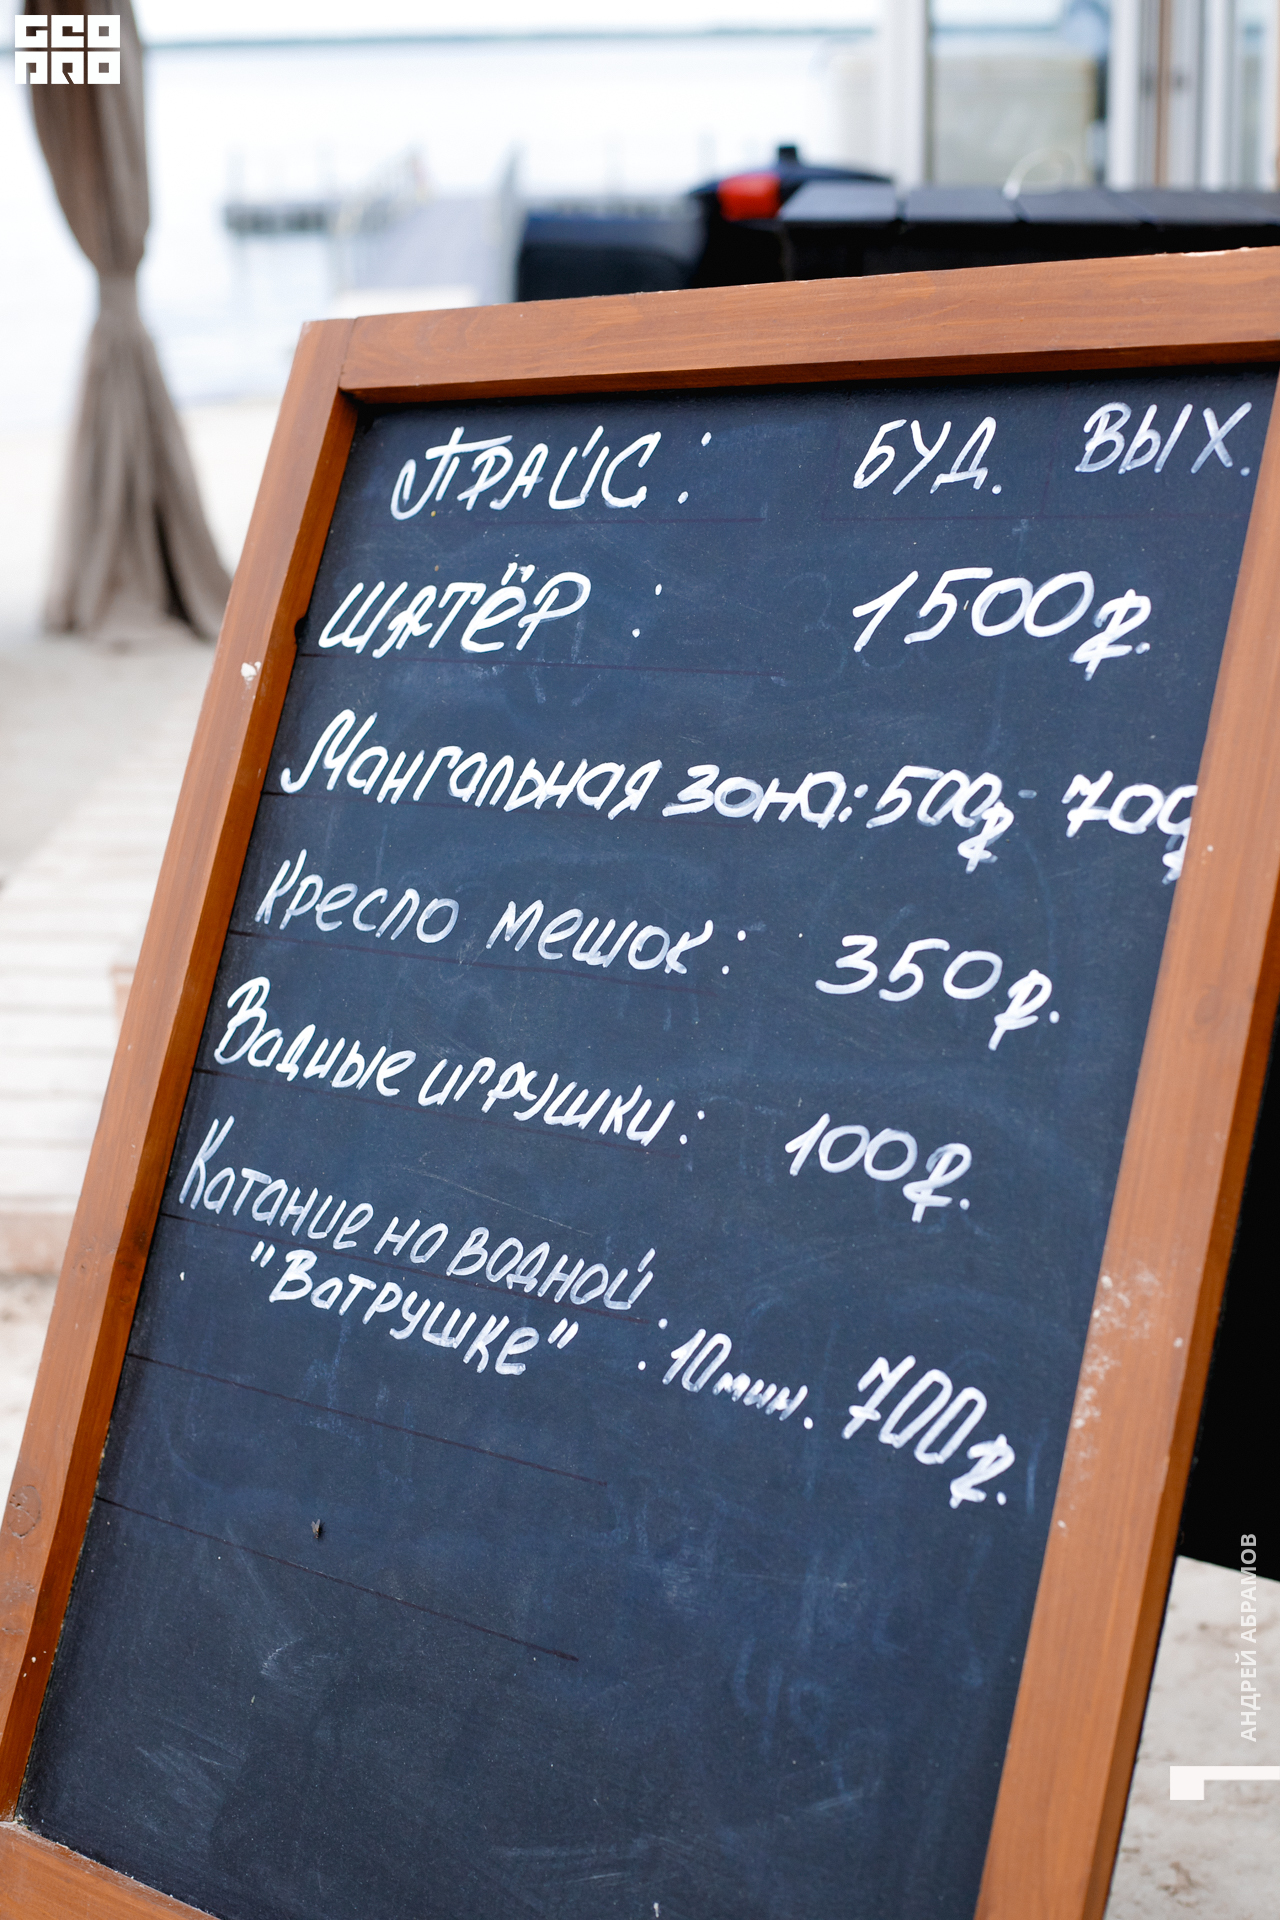 GEO
PRO
ПРАЙС: БУД. ВЫХ.
ШАТЁР: 1500₽.
Мангальная зона: 500₽ - 700₽
Кресло мешок: 350₽.
Водные игрушки: 100₽.
Катание на водной
"Ватрушке" : 10 мин. 700₽.
АНДРЕЙ АБРАМОВ